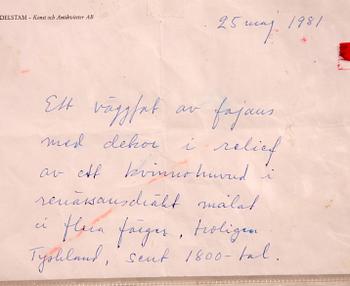 DELSTAM - Konst och Antikviteter AB
25 maj 1981
Ett väggfat av fajans
med dekor i relief
av ett kvinnohuvud i
renässansdräkt målat
i flera färger, troligen
Tyskland, sent 1800-tal.